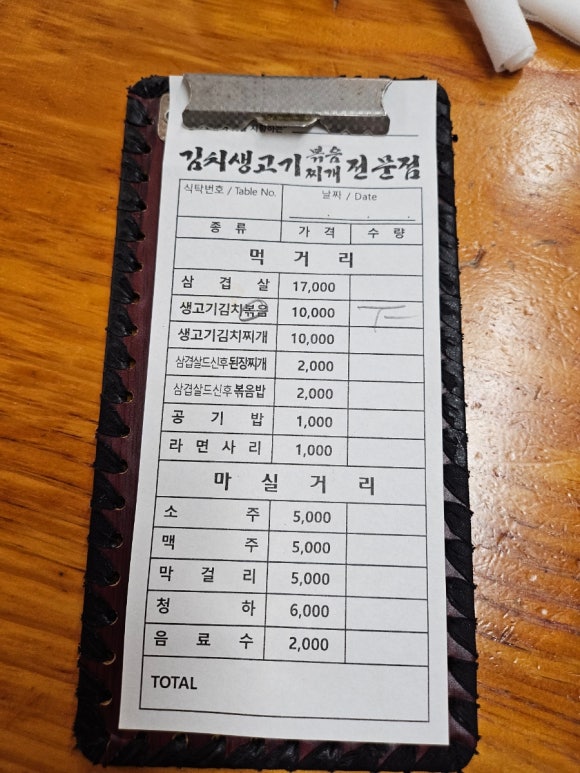 김치생고기 볶음 찌개 전문점
식탁번호 / Table No. 날짜 / Date
종 류 가 격 수 량
먹 거 리
삼 겹 살 17,000
생고기김치볶음 10,000
생고기김치찌개 10,000
삼겹살드신후된장찌개 2,000
삼겹살드신후볶음밥 2,000
공 기 밥 1,000
라 면 사 리 1,000
마 실 거 리
소 주 5,000
맥 주 5,000
막 걸 리 5,000
청 하 6,000
음 료 수 2,000
TOTAL